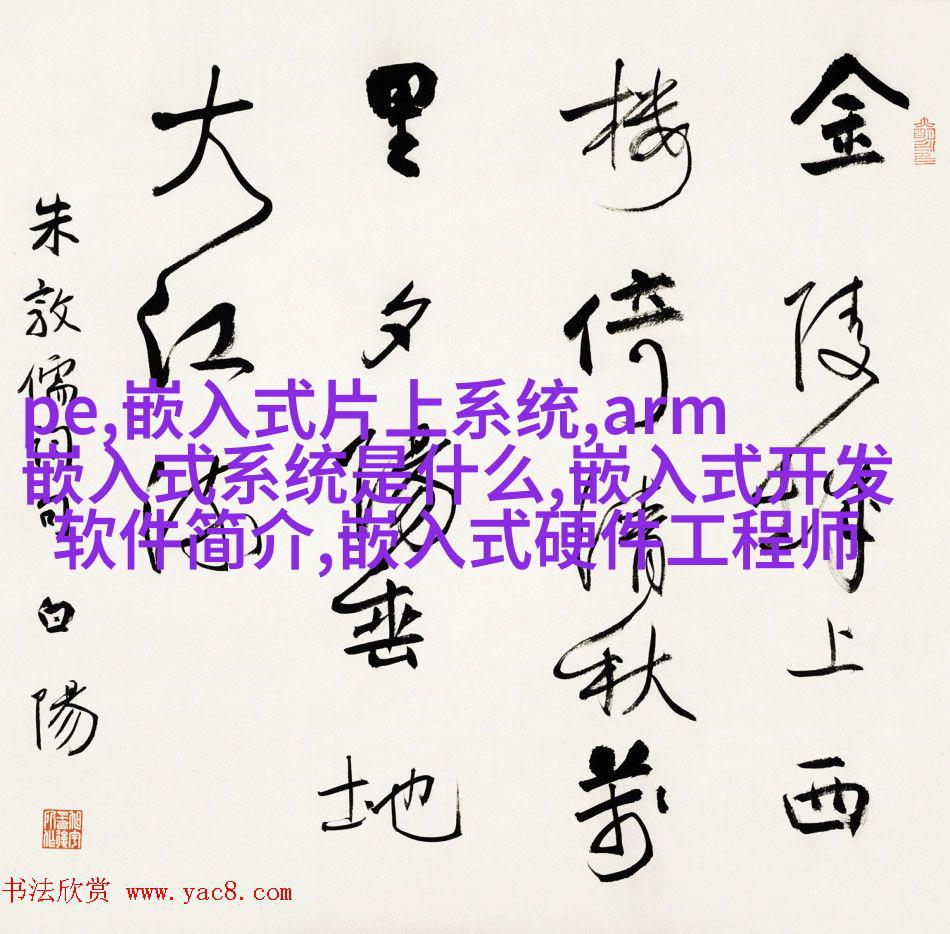 金陵城上西
楼倚清秋萬
里夕陽垂地
大江流
朱敦儒詞句 白陽
pe,嵌入式片上系统,arm
嵌入式系统是什么,嵌入式开发
软件简介,嵌入式硬件工程师
书法欣赏 www.yac8.com